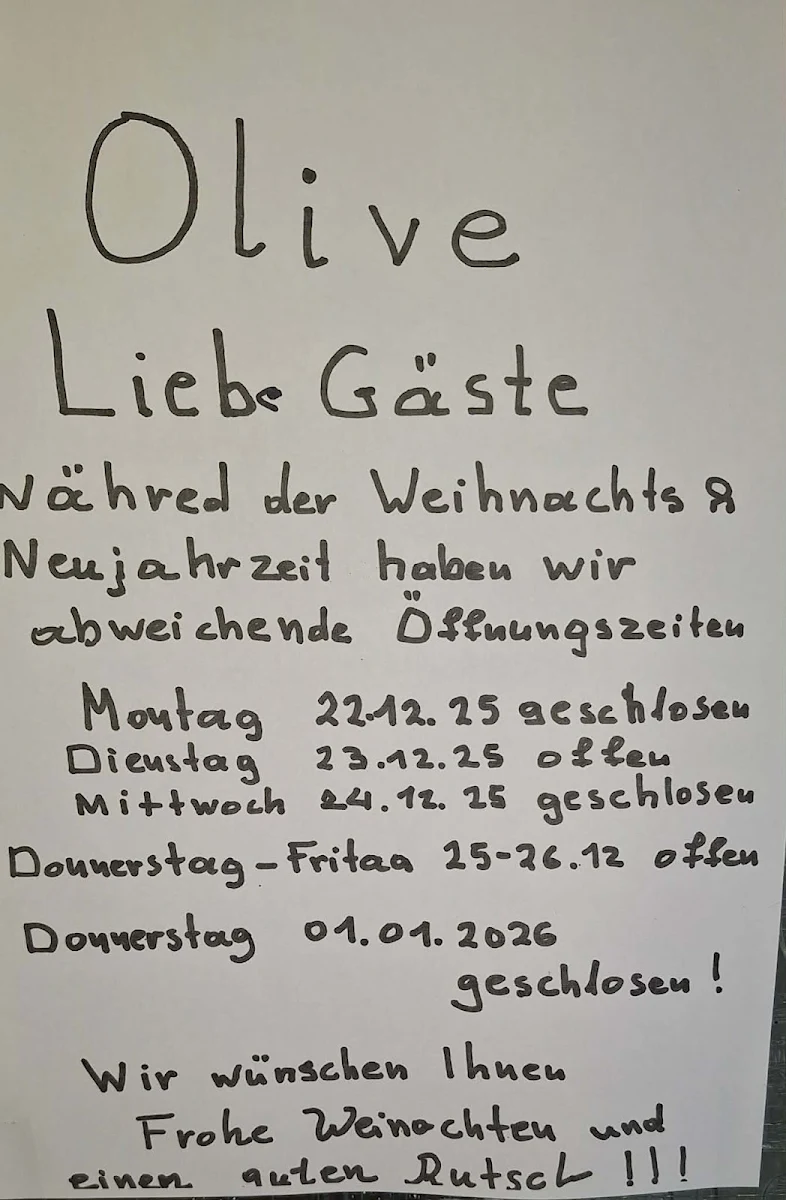 Olive
Liebe Gäste
Währed der Weihnachts &
Neujahrzeit haben wir
abweichende Öffnungszeiten
Montag 22.12.25 geschlosen
Dienstag 23.12.25 offen
Mittwoch 24.12.25 geschlosen
Donnerstag-Fritag 25-26.12 offen
Donnerstag 01.01.2026
geschlosen!
Wir wünschen Ihnen
Frohe Weinachten und
einen guten Rutsch !!!